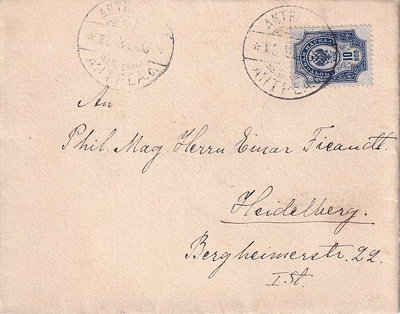 ANTR
АНТРЕА.С.
ANTR
АНТРЕА.С.
10
An
Phil. Mag. Herrn Einar Ficandt.
Heidelberg.
Bergheimerstr. 22
I. St.